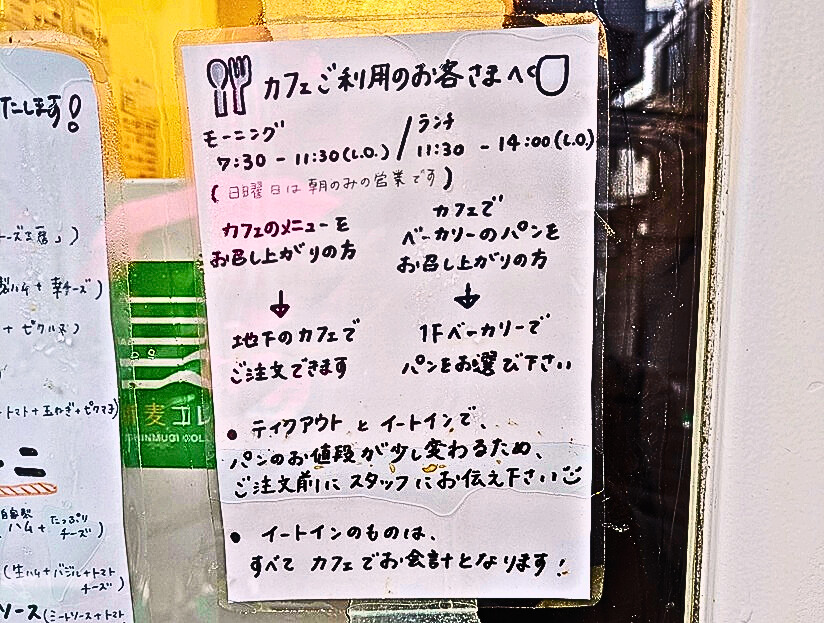 カフェご利用のお客さまへ
モーニング / ランチ
7:30 - 11:30(L.O.) 11:30 - 14:00(L.O.)
(日曜日は朝のみの営業です)
カフェのメニューを
お召し上がりの方
↓
地下のカフェで
ご注文できます
カフェで
ベーカリーのパンを
お召し上がりの方
↓
1Fベーカリーで
パンをお選び下さい
● テイクアウトとイートインで、
パンのお値段が少し変わるため、
ご注文前にスタッフにお伝え下さい
● イートインのものは、
すべてカフェでお会計となります!
たします!
+ ピクルス)
トマト+玉ねぎ+ピクマヨ)
ニ
自家製
ハム+たっぷり
チーズ)
(生ハム+バジル+トマト
チーズ)
ソース(ミートソース+トマト
麦コレ
SHINMUGI COLL